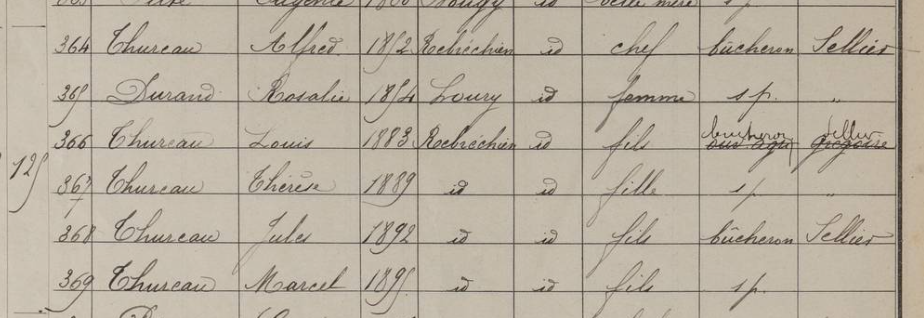 Eugénie 1860 Bougy id belle mère sp.
364 Thureau Alfred 1852 Rebréchien id chef bûcheron Sellier
365 Durand Rosalie 1854 Loury id femme sp. "
bucheron Sellier
366 Thureau Louis 1883 Rebréchien id fils ouv. agri Grégoire
129 367 Thureau Thérèse 1889 id id fille sp. "
368 Thureau Jules 1892 id id fils bûcheron Sellier
369 Thureau Marcel 1895 id id fils sp.